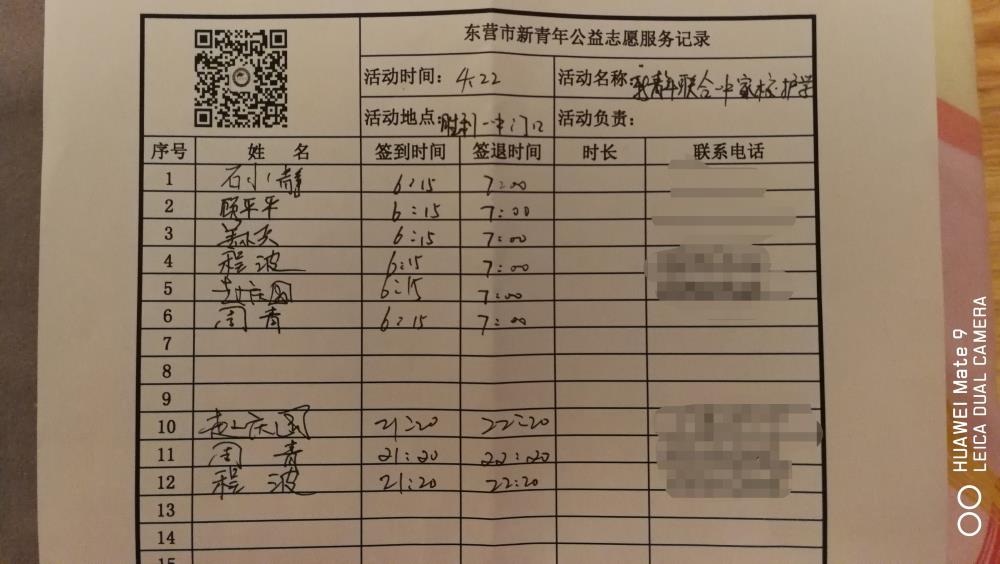 东营市新青年公益志愿服务记录
活动时间：4.22 活动名称：新青年联合一中家校护学
活动地点：胜利一中门口 活动负责：
序号 姓 名 签到时间 签退时间 时长 联系电话
1 石小静 6:15 7:00
2 顾平平 6:15 7:00
3 6:15 7:00
4 程波 6:15 7:00
5 赵庆国 6:15 7:00
6 周青 6:15 7:00
7
8
9
10 赵庆国 21:20 22:20
11 周青 21:20 22:20
12 程波 21:20 22:20
13
14
15
HUAWEI Mate 9
LEICA DUAL CAMERA